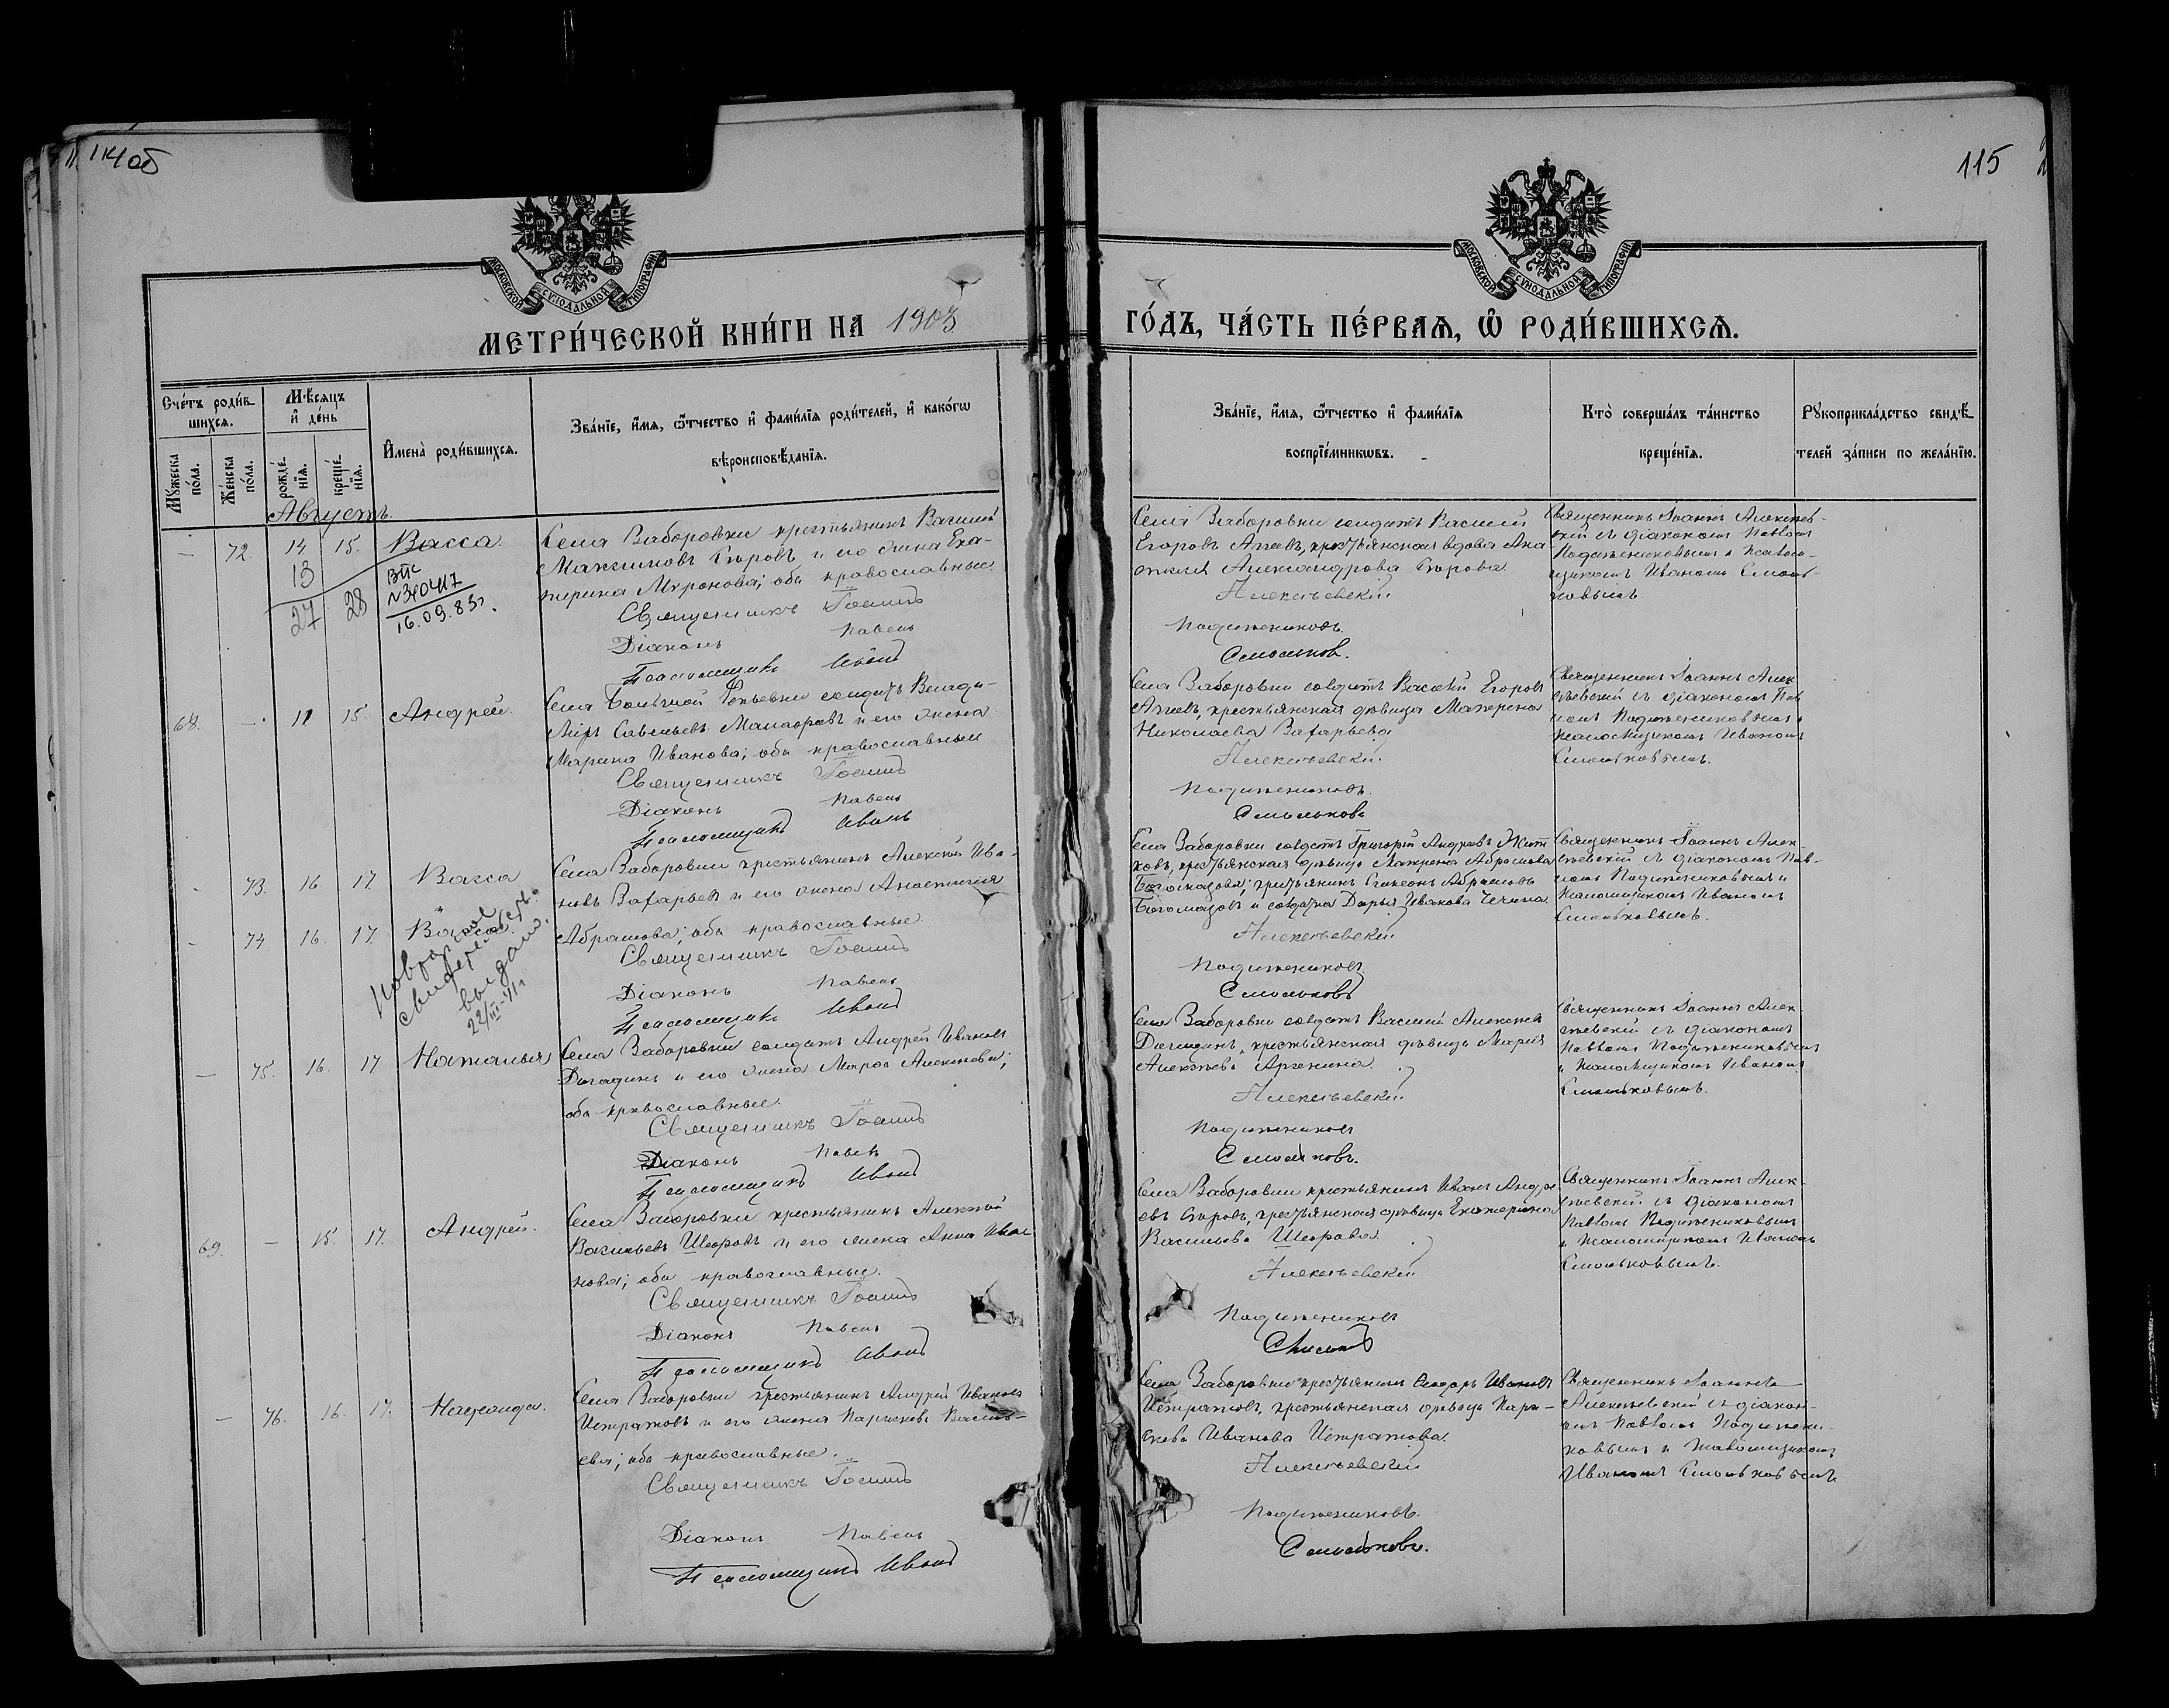 114об
115
МОСКОВСКОЙ СѴНОДАЛЬНОЙ ТИПОГРАФІИ
МОСКОВСКОЙ СѴНОДАЛЬНОЙ ТИПОГРАФІИ
МЕТРИ́ЧЕСКОЙ КНИ́ГИ НА 1903
ГО́ДЪ, ЧА́СТЬ ПЕ́РВАЯ, Ѡ҆ РОДИ́ВШИХСЯ.
Сче́тъ роди́в-
шихся.
Мꙋ́жеска
по́ла.
Же́нска
по́ла.
Мѣ́сяцъ
и҆ де́нь
рожде́-
нїя.
креще́-
нїя.
И҆мена̀ роди́вшихся.
Зва́нїе, и҆́мя, ѻ҆́тчество и҆ фами́лїя роди́телей, и҆ како́гѡ
вѣроисповѣ́данїя.
Зва́нїе, и҆́мя, ѻ҆́тчество и҆ фами́лїя
воспрїе́мникѡвъ.
Кто̀ соверша́лъ та́инство
креще́нїя.
Рꙋкоприкла́дство свидѣ́-
телей за́писи по жела́нїю.
Августъ.
— 72. 14 15. Васса.
13
27 28
16.09.83г.
Села Заборовки крестьянинъ Василий
Максимовъ Егоровъ и его жена Ека-
терина Миронова; оба православные.
Священникъ Іоаннъ
Діаконъ Павелъ
Псаломщикъ Иванъ
Села Заборовки солдатъ Василий
Егоровъ Агеевъ, крестьянская вдова
Александрова Егорова
Алексѣевскій
Подъячниковъ.
Смольковъ.
Священникъ Іоаннъ Алексѣев-
скій съ діакономъ Павломъ
и псалом-
щикомъ Иваномъ Смоль-
ковымъ
68. — 11 15. Андрей.
Села солдатъ Влади-
міръ Савельевъ и его жена
Марина Иванова; оба православные
Священникъ Іоаннъ
Діаконъ Павелъ
Псаломщикъ Иванъ
Села Заборовки солдатъ Василий Егоровъ
Агеевъ, крестьянская дѣвица Матрена
Николаева Захарьева
Алексѣевскій
Смольковъ
Священникъ Іоаннъ Алек-
сѣевскій съ діакономъ Пав-
ломъ
псаломщикомъ Иваномъ
Смольковымъ.
- 73. 16. 17 Васса
- 74. 16. 17. Васса.
Повторное
свидетельс.
выдано.
22/III-41г
Села Заборовки крестьянинъ Алексѣй Ива-
новъ Захарьевъ и его жена Анастасія
Абрамова; оба православные.
Священникъ Іоаннъ
Діаконъ Павелъ
Псаломщикъ Иванъ
Села Заборовки солдатъ Григорій Андреевъ
ковъ, крестьянская дѣвица Матрена Абрамова
Богомазова; крестьянинъ Симеонъ Абрамовъ
Богомазовъ и солдатка Дарья Иванова
Алексѣевскій
Смольковъ
Священникъ Іоаннъ Алек-
сѣевскій съ діакономъ Пав-
ломъ и
псаломщикомъ Иваномъ
Смольковымъ.
— 75. 16. 17 Наталья
Села Заборовки солдатъ Андрей Ивановъ
и его жена Марѳа Алексѣева;
оба православные.
Священникъ Іоаннъ
Діаконъ Павелъ
Псаломщикъ Иванъ
Села Заборовки солдатъ Василий Алексѣевъ
крестьянская дѣвица Марія
Алексѣева
Алексѣевскій
Смольковъ.
Священникъ Іоаннъ Алек-
сѣевскій съ діакономъ
Павломъ
и псаломщикомъ Иваномъ
Смольковымъ.
69. — 15. 17. Андрей.
Села Заборовки крестьянинъ Алексѣй
Васильевъ и его жена Анна Ива-
нова; оба православные.
Священникъ Іоаннъ
Діаконъ Павелъ
Псаломщикъ Иванъ
Села Заборовки крестьянинъ Иванъ Андре-
евъ Егоровъ, крестьянская дѣвица Екатерина
Васильева
Алексѣевскій
Священникъ Іоаннъ Алек-
сѣевскій съ діакономъ
Павломъ
и псаломщикомъ Иваномъ
Смольковымъ.
— 76. 16. 17. Надежда.
Села Заборовки крестьянинъ Андрей Ивановъ
Истратовъ и его жена Параскева Василь-
ева; оба православные.
Священникъ Іоаннъ
Діаконъ Павелъ
Псаломщикъ Иванъ
Села Заборовки крестьянинъ Ивановъ
Истратовъ, крестьянская дѣвица Пара-
скева Иванова Истратова.
Алексѣевскій
Смольковъ.
Священникъ Іоаннъ
Алексѣевскій съ діакон-
омъ Павломъ
и псаломщикомъ
Иваномъ Смольковымъ